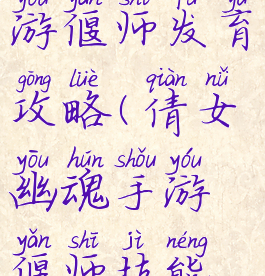 yóu yǎn shī fā yù
游偃师发育
gōng lüè qiàn nǚ
攻略(倩女
yōu hún shǒu yóu
幽魂手游
yǎn shī jì néng
偃师技能